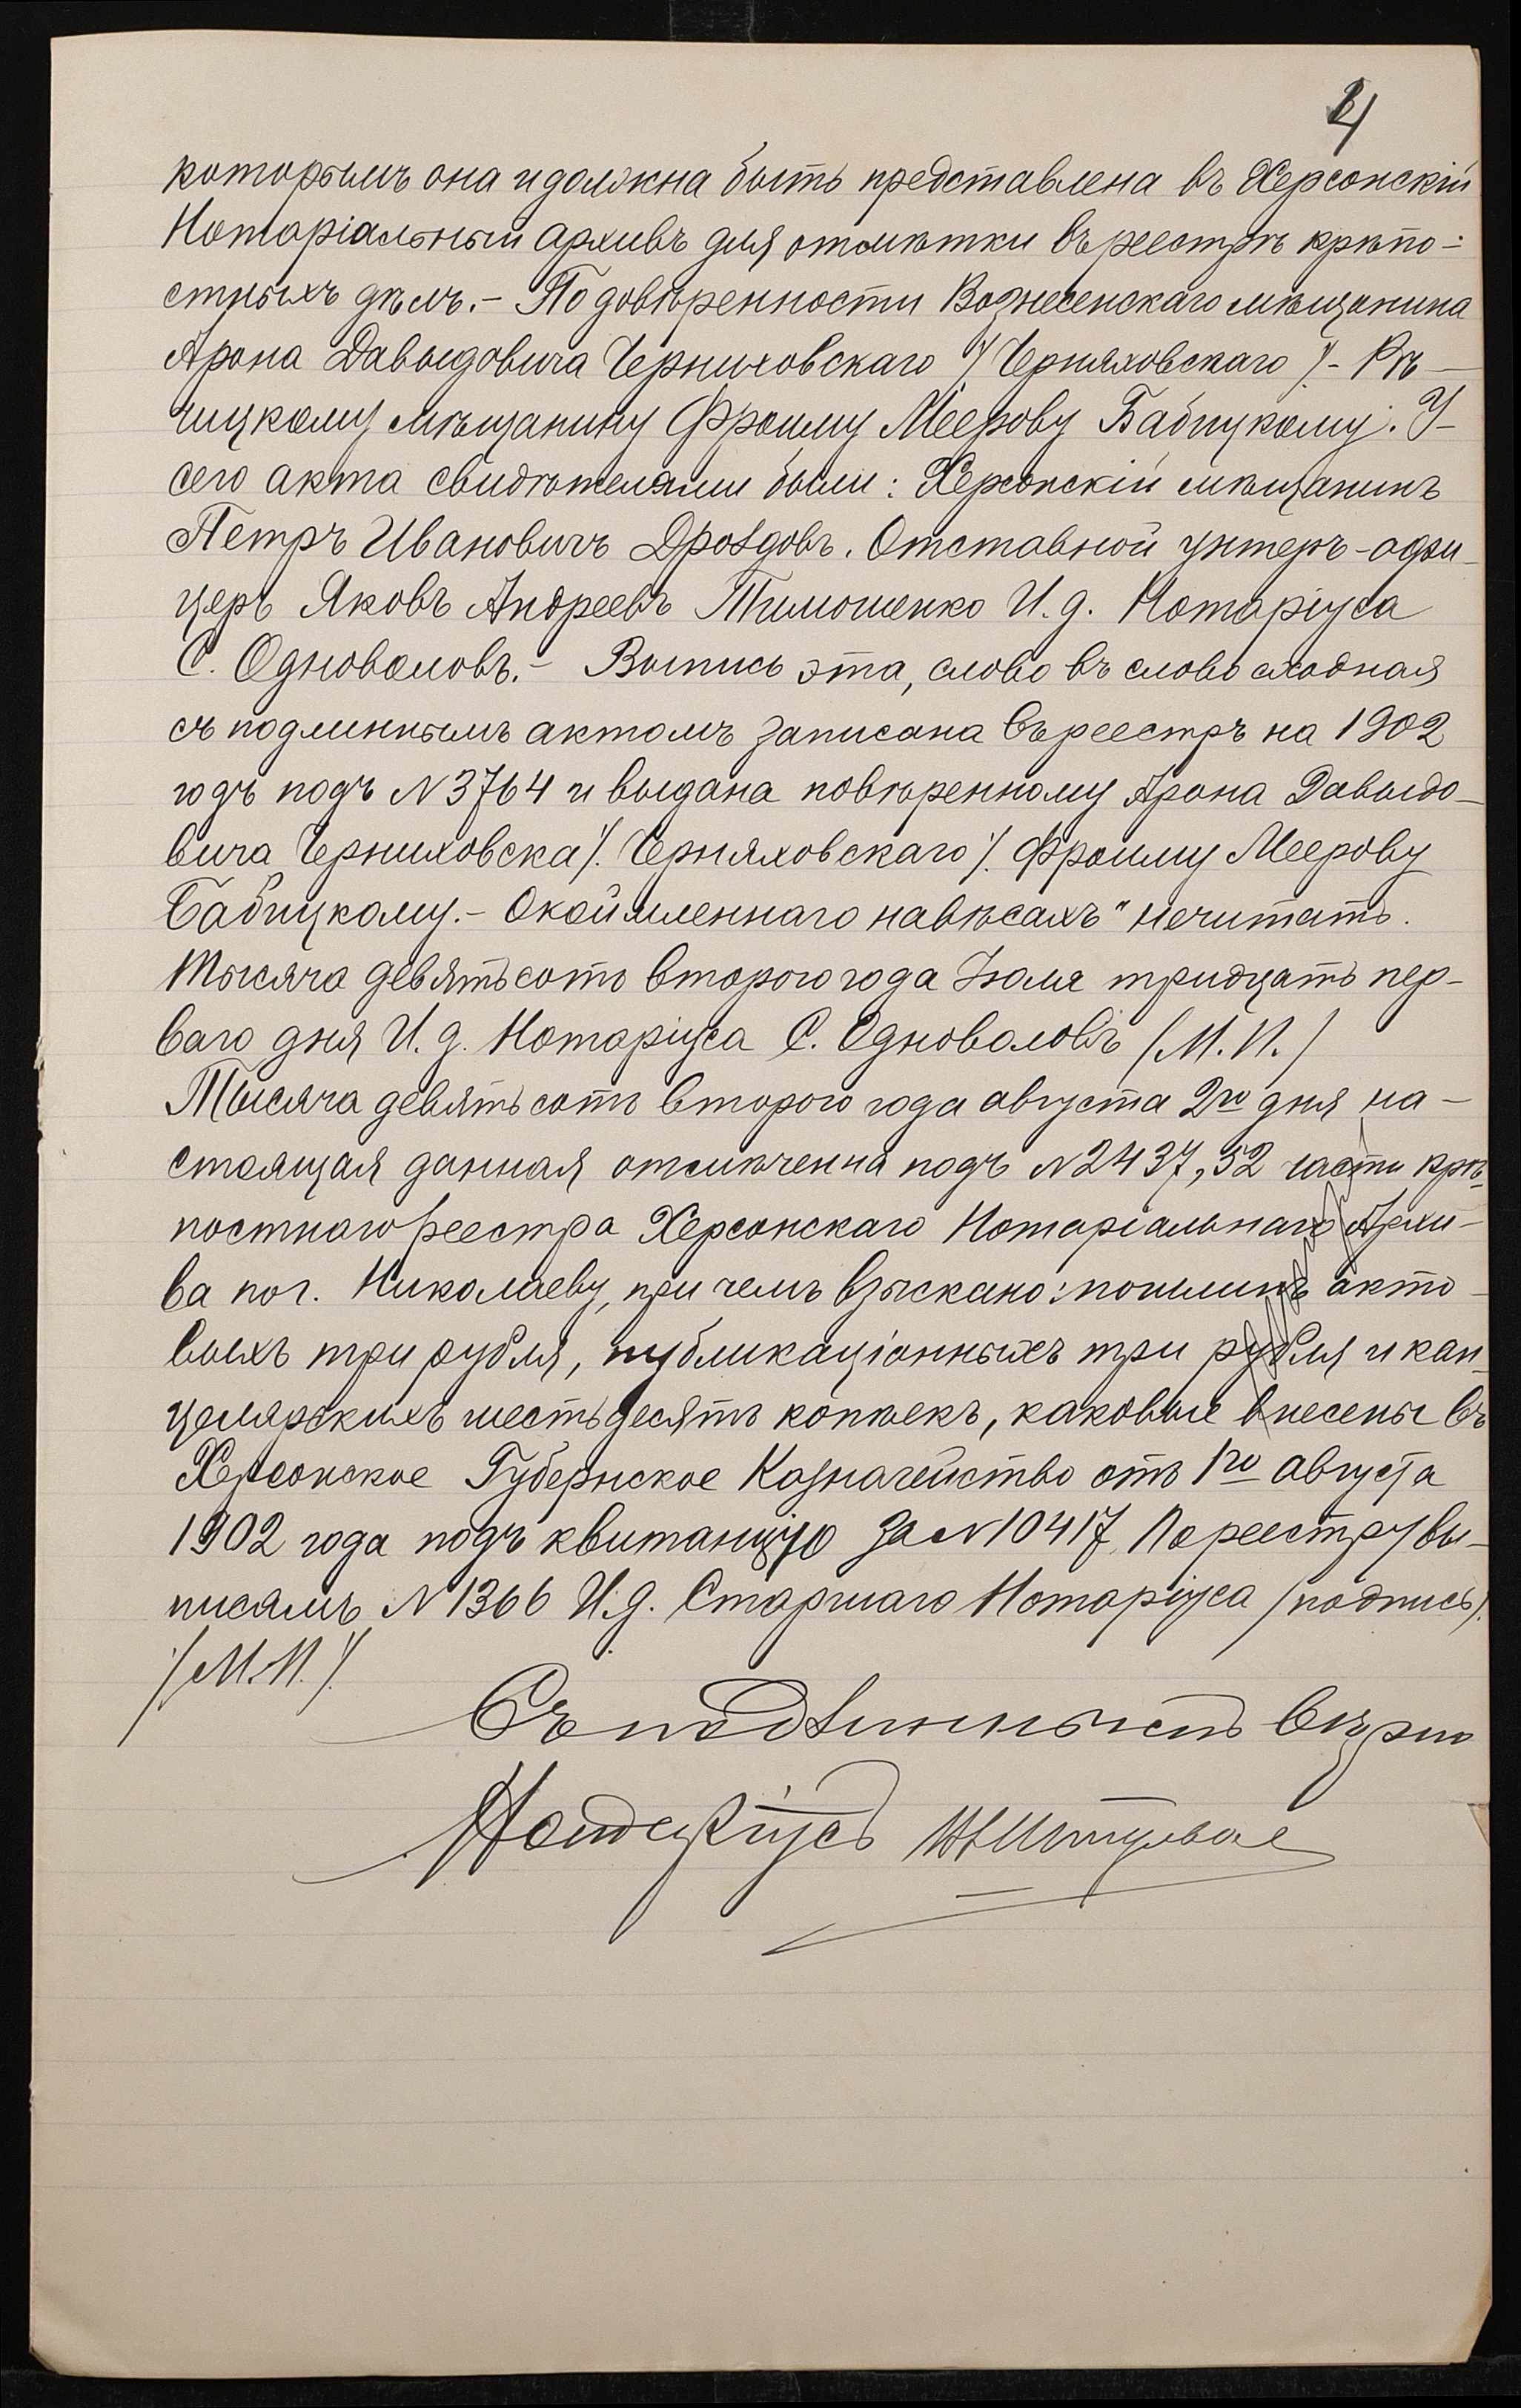 4
которымъ она и должна быть представлена въ Херсонскій
Нотаріальный Архивъ для отмѣтки въ реестрѣ крѣпо-
стныхъ дѣлъ.- По довѣренности Вознесенскаго мѣщанина
Арона Давыдовича Черниховскаго /Черняховскаго/- Рѣ-
чицкому мѣщанину Фроиму Меерову Бабицкому. У-
сего акта свидѣтелями были: Херсонскій мѣщанинъ
Петръ Ивановичъ Дроздовъ. Отставной унтеръ-офи-
церъ Яковъ Андреевъ Тимошенко И. д. Нотаріуса
С. Одноваловъ.- Выпись эта, слово въ слово сходная
съ подлиннымъ актомъ записана въ реестръ на 1902
годъ подъ N 3764 и выдана повѣренному Арона Давыдо-
вича Черниховска /Черняховскаго/ Фроиму Меерову
Бабицкому.- Окоймленнаго навѣсахъ" нечитать.
Тысяча девятьсотъ второго года Іюля тридцать пер-
ваго дня И. д. Нотаріуса С. Одноваловъ /М. П./
Тысяча девятьсотъ второго года августа 2го дня на-
стоящая данная отмѣчена подъ N 2437, 52 части крѣ-
постнаго реестра Херсонскаго Нотаріальнаго Архи-
ва по г. Николаеву, при чемъ взыскано: пошлинъ акто-
выхъ три рубля, публикаціонныхъ три рубля и кан-
целярскихъ шестьдесятъ копѣекъ, каковые внесены въ
Херсонское Губернское Казначейство отъ 1го августа
1902 года подъ квитанцію за N 10417. По реестру вы-
писямъ N 1366 И. д. Старшаго Нотаріуса /подпись/.
/М. П./
Съ подлиннымъ вѣрно
Нотаріусъ